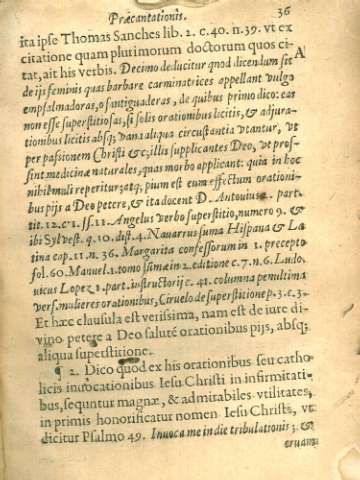 Præcantationis. 36
ita ipse Thomas Sanches lib. 2. c. 40. n. 39. vt ex
citatione quam plurimorum doctorum quos ci-
tat, ait his verbis. Decimo deducitur quod dicendum sit A
de ijs feminis quas barbare carminatrices appellant vulgo
empsalmadoras, o santiguaderas, de quibus primo dico: eas
non esse superstitiosas, si solis orationibus licitis, & adjura-
tionibus licitis absq; vana aliqua circustantia vtantur, vt
per pasionem Christi &c; illis supplicantes Deo, vt pros-
sint medicinæ naturales, quas morbo applicant: quia in hoc
nihil mali reperitur; atq, pium est eum effectum orationi-
bus pijs a Deo petere, & ita docent D. Antonius 2. part.
tit. 12. c. 1. §. 11. Angelus verbo superstitio, numero 9. &
ibi Sylvest. q. 10. dist. 4. Navarrus suma Hispana & La
tina cap. 11. n. 36. Margarita confessorum in 1. precepto
fol. 60. Manuel. 1. tomo sumæ in 2. editione c. 7. n. 6. Ludo
uicus Lopez 1. part. instructorij c. 41. columna penultima
vers. mulieres orationibus, Ciruelo de superstitione p. 3. c. 3.
Et hæc clausula est verissima, nam est de iure di-
vino petere a Deo salutē orationibus pijs, absq;
aliqua superstitione.
¶ 2. Dico quod ex his orationibus seu catho
licis invocationibus Iesu Christi in infirmitati-
bus, sequntur magnæ, & admirabiles vtilitates,
in primis honorificatur nomen Iesu Christi, vt
dicitur Psalmo 49. Invoca me in die tribulationis &
eruam